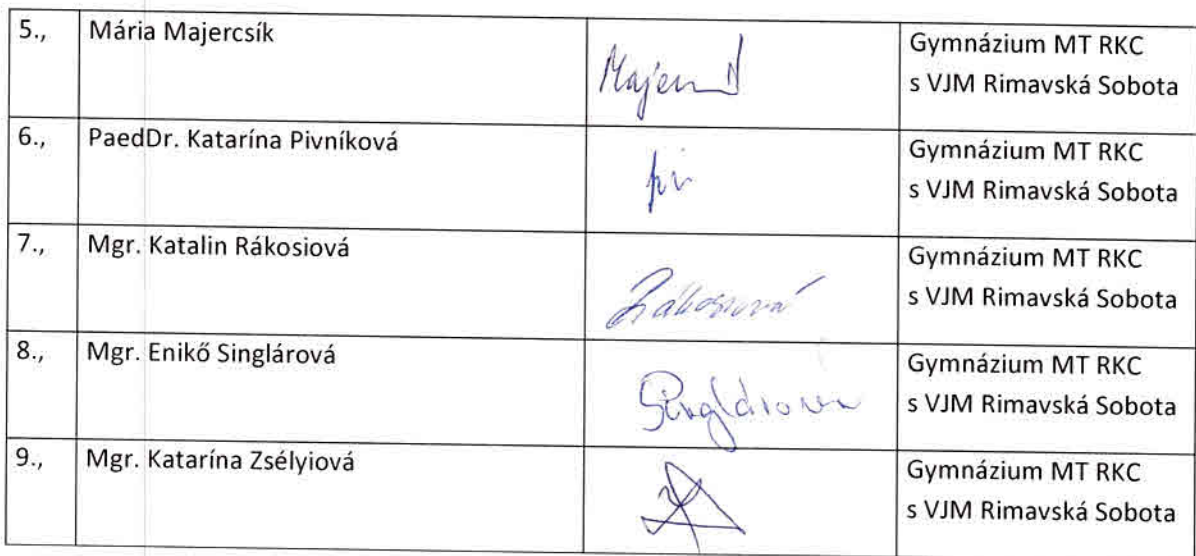 5., Mária Majercsík Gymnázium MT RKC
s VJM Rimavská Sobota
6., PaedDr. Katarína Pivníková Gymnázium MT RKC
s VJM Rimavská Sobota
7., Mgr. Katalin Rákosiová Gymnázium MT RKC
s VJM Rimavská Sobota
Rákosiová
8., Mgr. Enikő Singlárová Gymnázium MT RKC
s VJM Rimavská Sobota
Singlárová
9., Mgr. Katarína Zsélyiová Gymnázium MT RKC
s VJM Rimavská Sobota